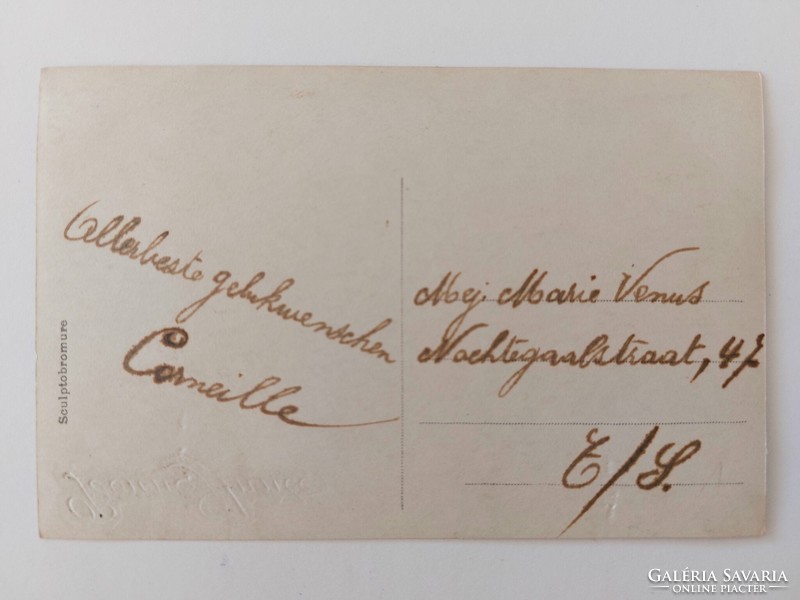 Allerbeste gelukwenschen
Corneille
Mej. Marie Venus
Nachtegaalstraat, 47
T/S.
Sculptobromure
GALÉRIA SAVARIA
ONLINE PIACTÉR